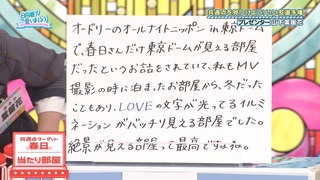 日向坂で会いましょう
プレゼンター 山下葉留花
オードリーのオールナイトニッポン in 東京ドーム
で、春日さんだけ東京ドームが見える部屋
だったというお話をされていて、私もMV
撮影の時に泊まったお部屋から、冬だった
こともあり、LOVEの文字が光ってるイルミ
ネーションがバッチリ見える部屋でした。
絶景が見える部屋って最高ですよね。
共通点ターゲット
春日
当たり部屋